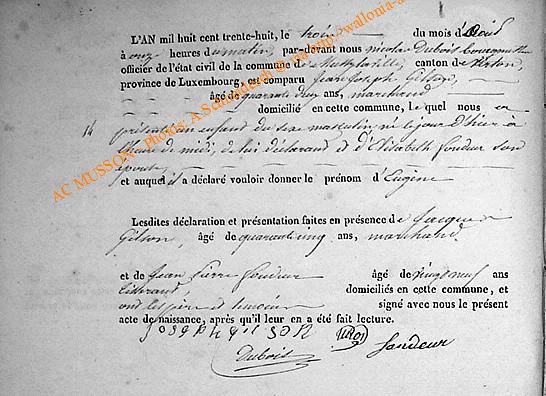 L'AN mil huit cent trente-huit, le trois du mois d'Août
à onze heures du matin, par-devant nous Nicolas Dubois Bourgmestre
officier de l'état civil de la commune de canton de Virton,
province de Luxembourg, est comparu Jean Joseph Gilson,
âgé de quarante deux ans, marchand
domicilié en cette commune, lequel nous
14
présenté un enfant du sexe masculin, né le jour d'hier à
l'heure de midi, de lui déclarant et d'Elisabeth Sondeur son
épouse,
et auquel il a déclaré vouloir donner le prénom d'Eugène
Lesdites déclaration et présentation faites en présence de Jacques
Gilson, âgé de quarante cinq ans, marchand
et de Jean Pierre Sondeur âgé de vingt neuf ans
domiciliés en cette commune, et
ont les père et témoins signé avec nous le présent
acte de naissance, après qu'il leur en a été fait lecture.
Joseph gilson
Dubois Sondeur
AC MUSSON - Photos: A.Schmidtach @ http://wallonia-a